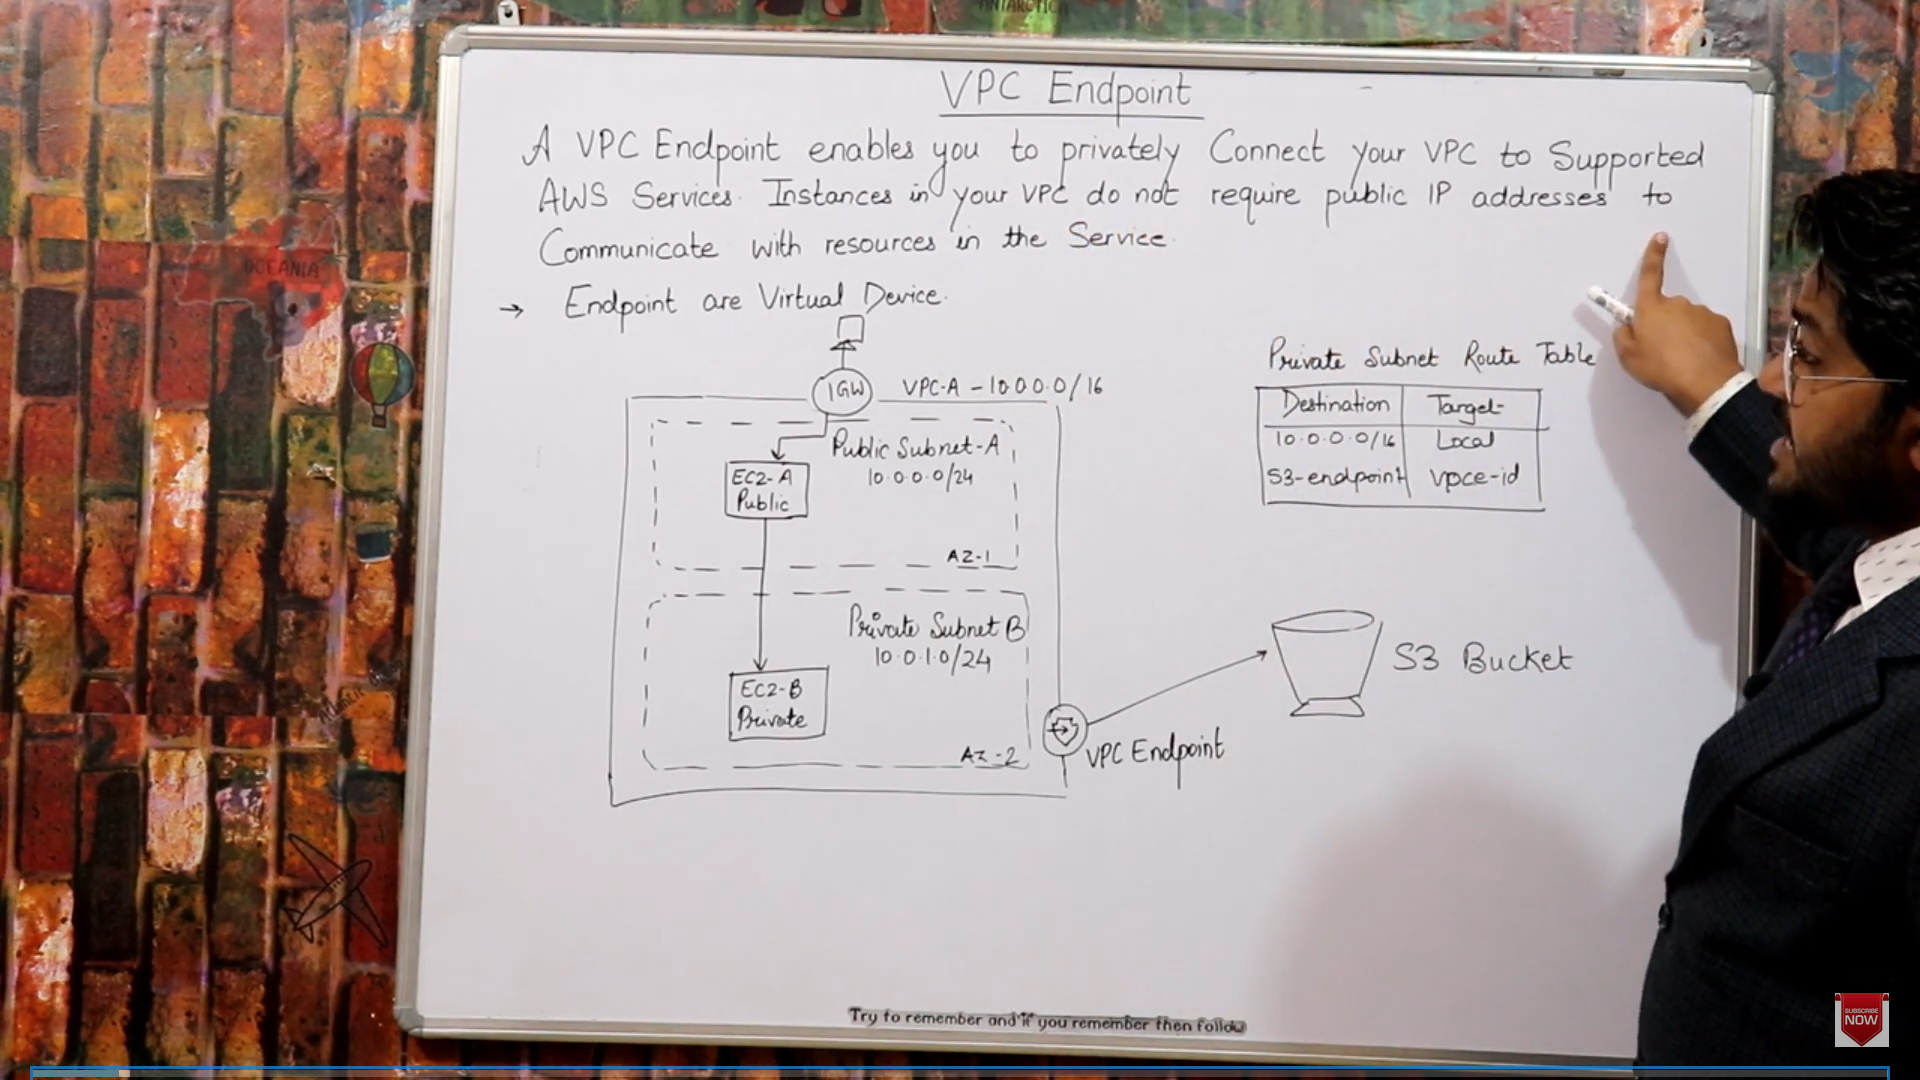 ANTARCTICA
VPC Endpoint
A VPC Endpoint enables you to privately Connect your VPC to Supported
AWS Services. Instances in your VPC do not require public IP addresses to
Communicate with resources in the Service.
→ Endpoint are Virtual Device.
OCEANIA
IGW
VPC-A - 10.0.0.0/16
Public Subnet-A
10.0.0.0/24
EC2-A
Public
AZ-1
Private Subnet B
10.0.1.0/24
EC2-B
Private
AZ-2
VPC Endpoint
Private Subnet Route Table
Destination Target
10.0.0.0/16 Local
S3-endpoint vpce-id
S3 Bucket
Try to remember and if you remember then follow
SUBSCRIBE
NOW